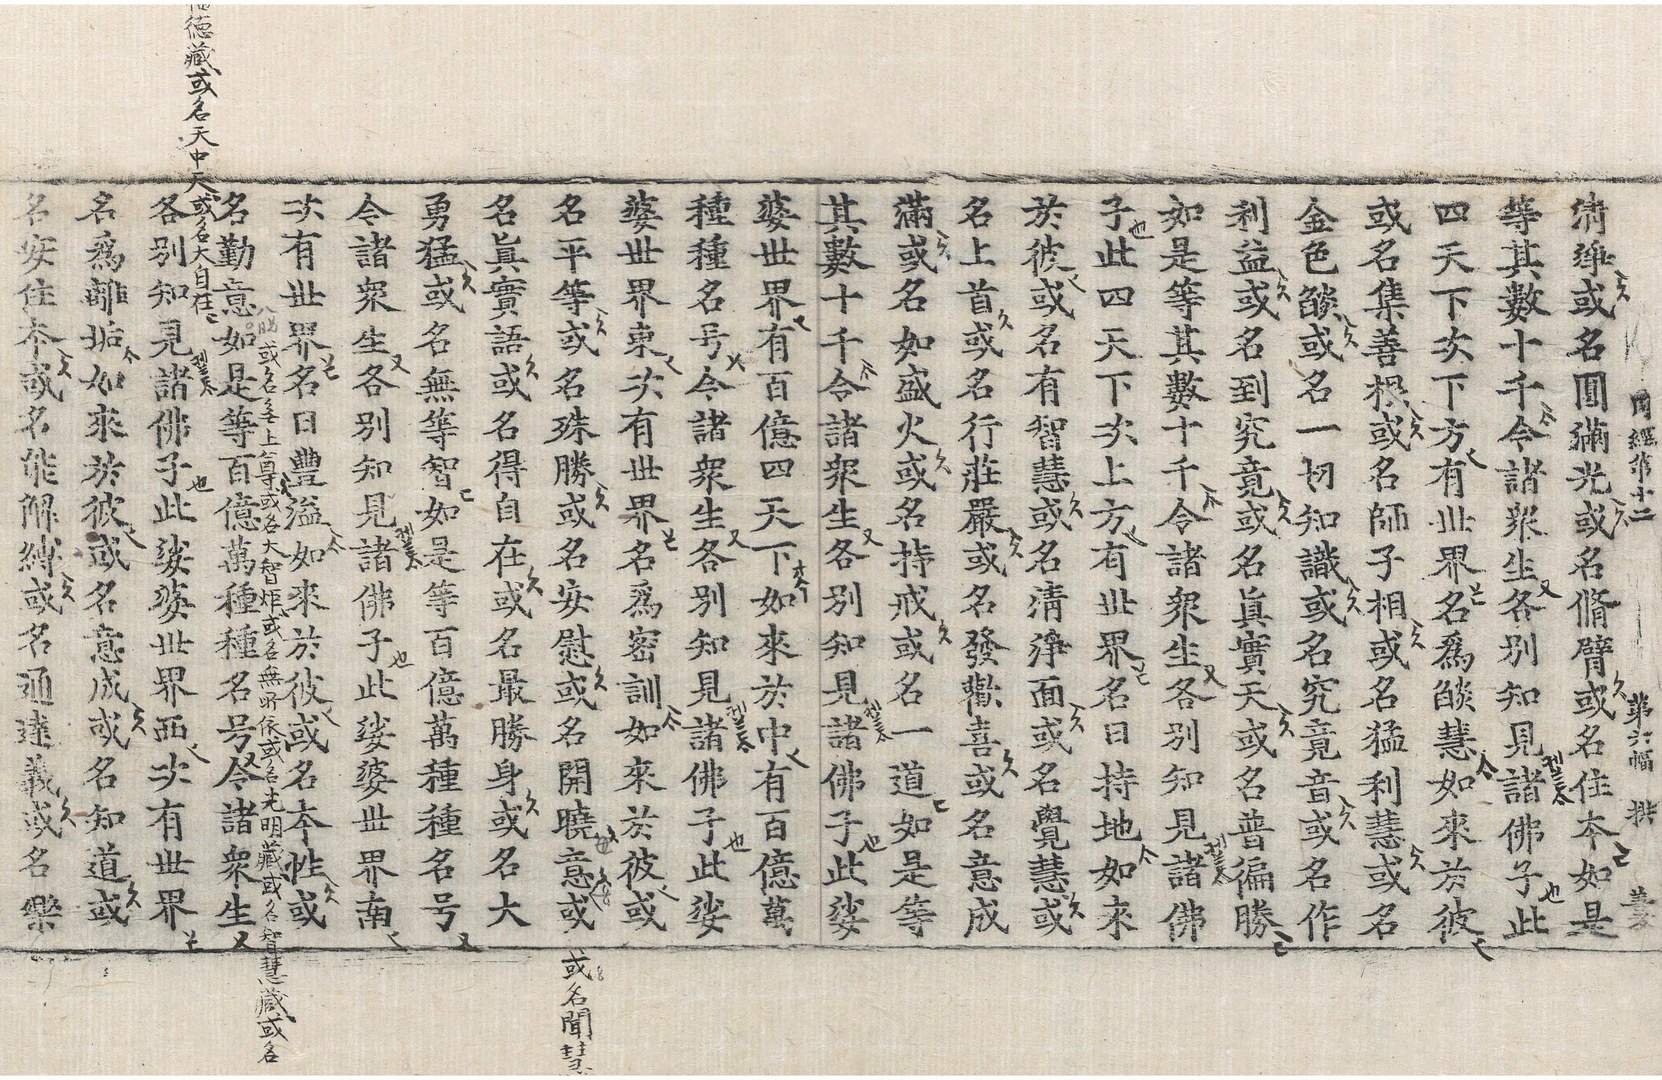 周經第十二 第六幅
清淨或名圓滿光或名脩臂或名住本如是
等其數十千令諸衆生各別知見諸佛子此
四天下次下方有世界名爲燄慧如來於彼
或名集善根或名師子相或名猛利慧或名
金色燄或名一切知識或名究竟音或名作
利益或名到究竟或名眞實天或名普徧勝
如是等其數十千令諸衆生各別知見諸佛
子此四天下次上方有世界名曰持地如來
於彼或名有智慧或名清淨面或名覺慧或
名上首或名行莊嚴或名發歡喜或名意成
滿或名如盛火或名持戒或名一道如是等
其數十千令諸衆生各別知見諸佛子此娑
婆世界有百億四天下如來於中有百億萬
種種名号令諸衆生各別知見諸佛子此娑
婆世界東次有世界名爲密訓如來於彼或
名平等或名殊勝或名安慰或名開曉意或
或名聞慧
名眞實語或名得自在或名最勝身或名大
勇猛或名無等智如是等百億萬種種名号
令諸衆生各別知見諸佛子此娑婆世界南
次有世界名曰豐溢如來於彼或名本性或
名勤意如是等百億萬種種名号令諸衆生
或名無上尊或名大智炬或名無所依或名光明藏或名智慧藏或名
德藏或名天中天或名大自在
各別知見諸佛子此娑婆世界西次有世界
名爲離垢如來於彼或名意成或名知道或
名安住本或名能解縛或名通達義或名樂